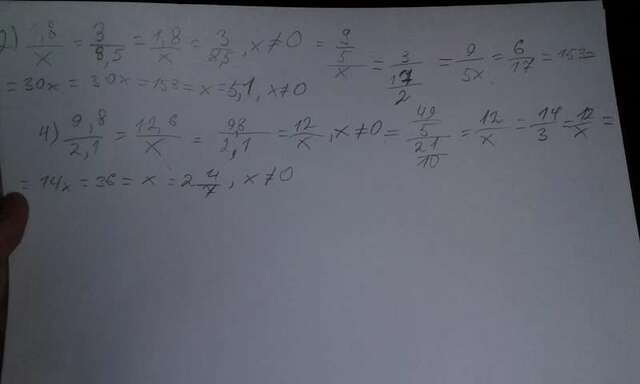 2) 1,8/x = 3/8,5 = 1,8/x = 3/8,5, x≠0 = 9/5/x = 3/17/2 = 9/5x = 6/17 = 153=
= 30x = 30x = 153 = x = 5,1, x≠0
4) 9,8/2,1 = 12,6/x = 9,8/2,1 = 12/x, x≠0 = 49/5/21/10 = 12/x = 14/3 = 12/x =
= 14x = 36 = x = 2 4/7, x≠0